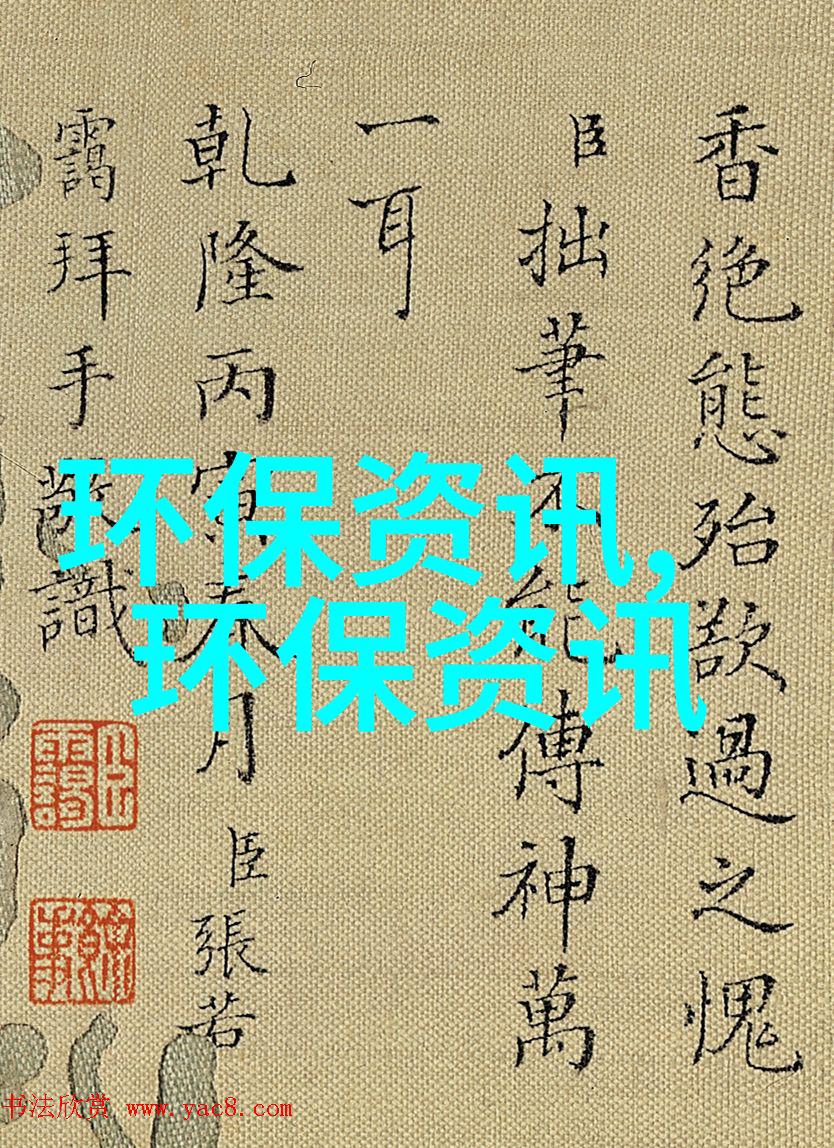 香絶態殆欲過之愧
臣拙筆不能傳神萬
一耳
乾隆丙寅春月臣張若
靄拜手敬識
环保资讯,
环保资讯
书法欣赏 www.yac8.com